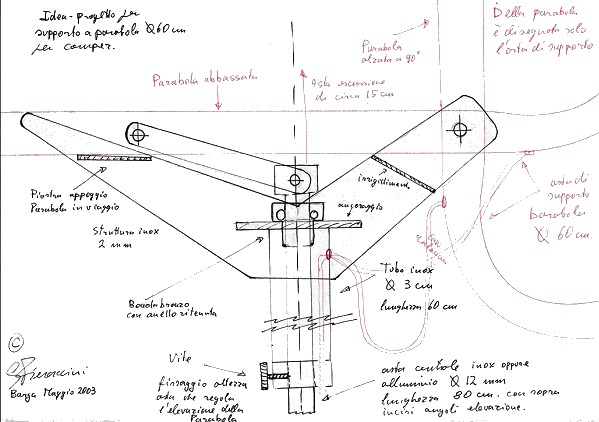 Idea-progetto per
supporto a parabola Ø 60 cm
per camper.
Della parabola
è disegnata solo
l'asta di supporto
Parabola
alzata a 90°
Parabola abbassata
Asta escursione
di circa 15 cm
Piastra appoggio
Parabola in viaggio
irrigidimenti
ancoraggio
struttura inox
2 mm
asta di
supporto
parabola
Ø 60 cm.
Boccola bronzo
con anello ritenuta
Tubo inox
Ø 3 cm
lunghezza 60 cm
Vite
fissaggio altezza
asta che regola
l'elevazione della
Parabola
asta centrale inox oppure
alluminio Ø 12 mm
lunghezza 80 cm. con sopra
incisi angoli elevazione.
©
Barga Maggio 2003